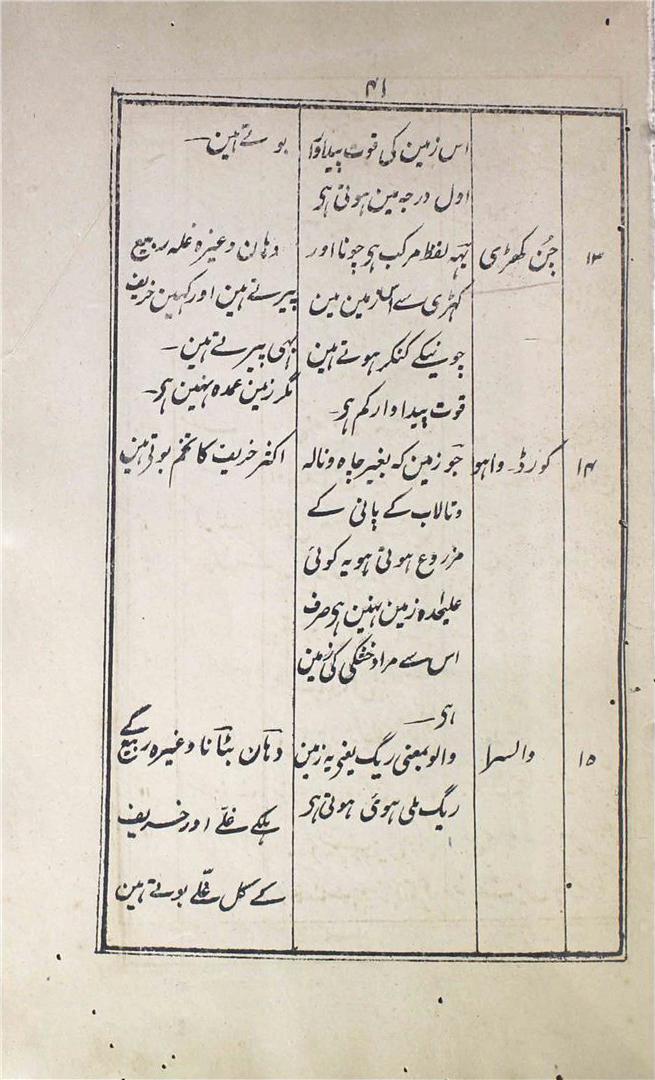 ۴۱
اس زمین کی قوت پیداوار
بوتے ہین
اول درجہ مین ہوتی ہی
۱۳
چُن کھڑی
یہہ لفظ مرکب ہی چونا اور
کہڑی سے اس زمین مین
چونیکے کنکر ہوتے ہین
قوت پیداوار کم ہی۔
دہان وغیرہ غلہ ربیع
پیرتے ہین اور کہین خریف
بہی پیرتے ہین۔
مگر زمین عمدہ نہین ہی۔
۱۴
کورڈ۔ واہو
جو زمین کہ بغیر چاہ و نالہ
وتالاب کے پانی کے
مزروع ہوتی ہو یہ کوئی
علیحدہ زمین نہین ہی صرف
اس سے مراد خشکی کی زمین
ہی۔
اکثر خریف کا تخم بوتے ہین
۱۵
والسرا
والو بمعنی ریگ یعنی یہ زمین
ریگ ملی ہوئ ہوتی ہی
دہان بٹانا وغیرہ ربیع کے
ہلکے غلّے اور خریف
کے کل غلّے بوتے ہین